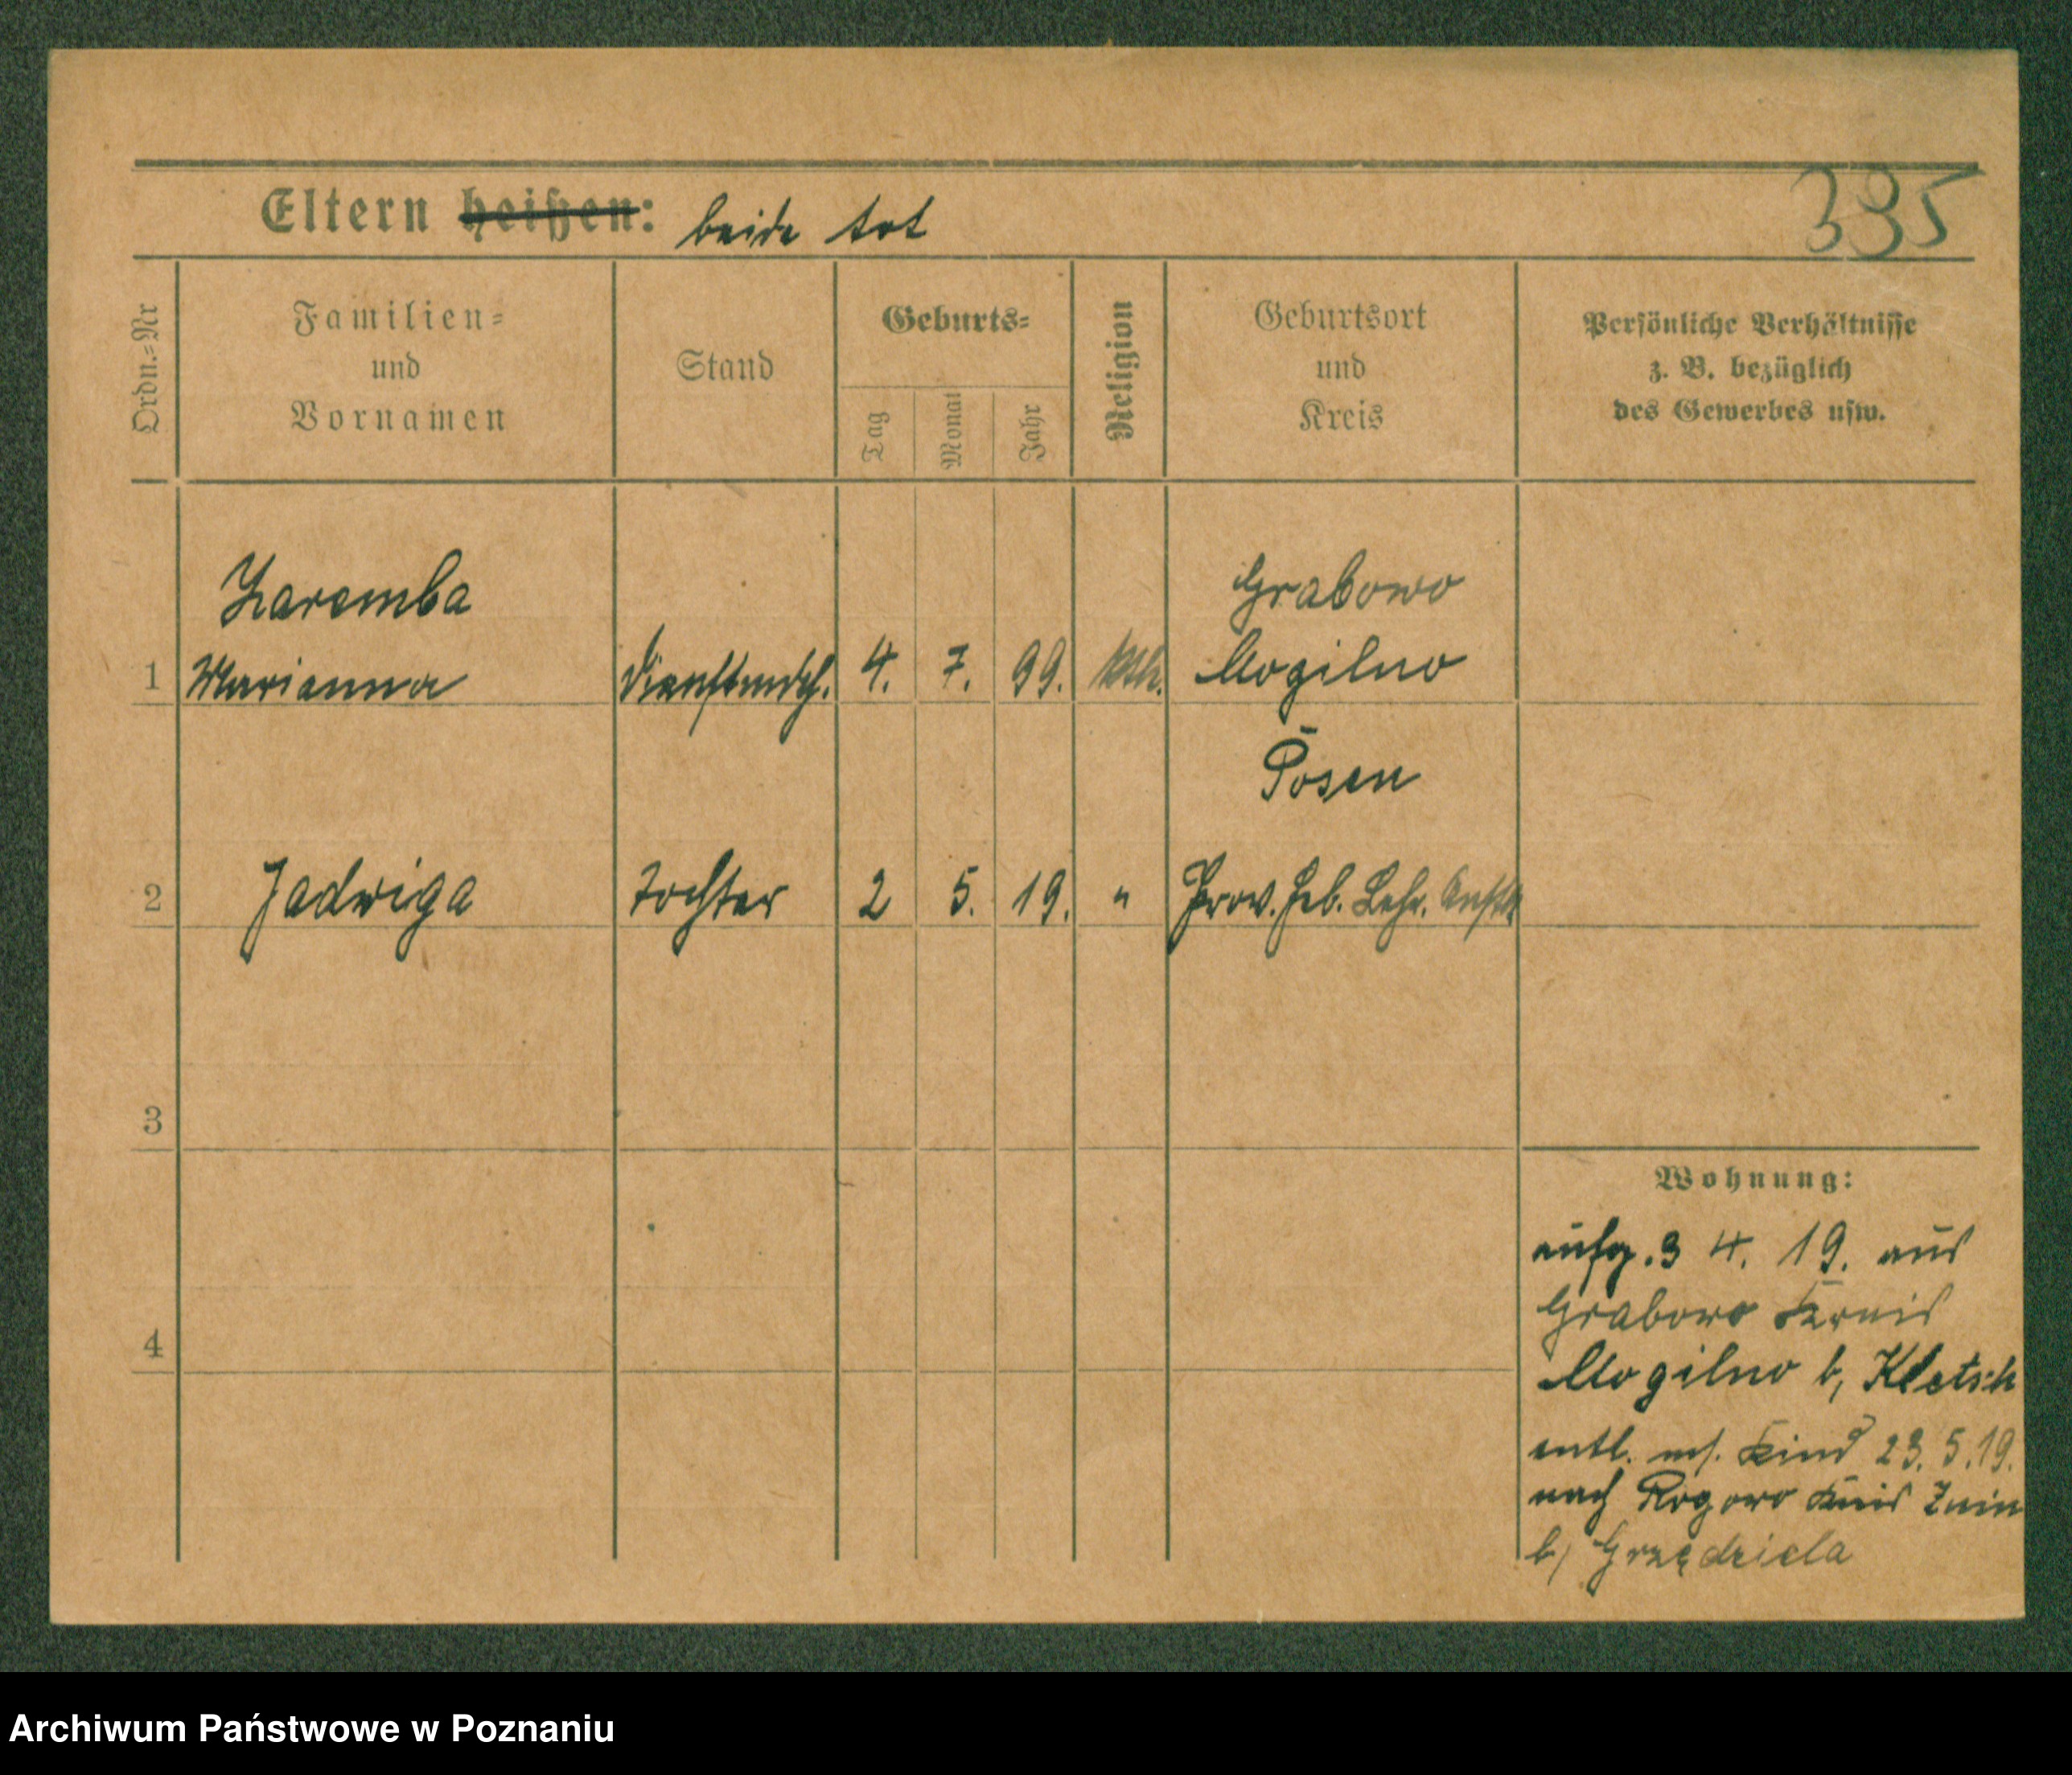 335
Eltern heißen: beide tot
Ordn.=Nr
Familien=
und
Vornamen
Stand
Geburts=
Tag
Monat
Jahr
Religion
Geburtsort
und
Kreis
Persönliche Verhältnisse
z. B. bezüglich
des Gewerbes usw.
Zaremba
Grabowo
1 Marianna Dienstmdch. 4. 7. 99. kth. Mogilno
Posen
2 Jadwiga Tochter 2 5. 19. " Prov. Heb. Lehr. Anstlt
3
4
Wohnung:
aufg. 3 4. 19. aus
Grabowo Kreis
Mogilno b, Kletsch
entl. m/. Kind 23. 5. 19.
nach Rogowo Kreis Znin
b/ Grzędziela
Archiwum Państwowe w Poznaniu